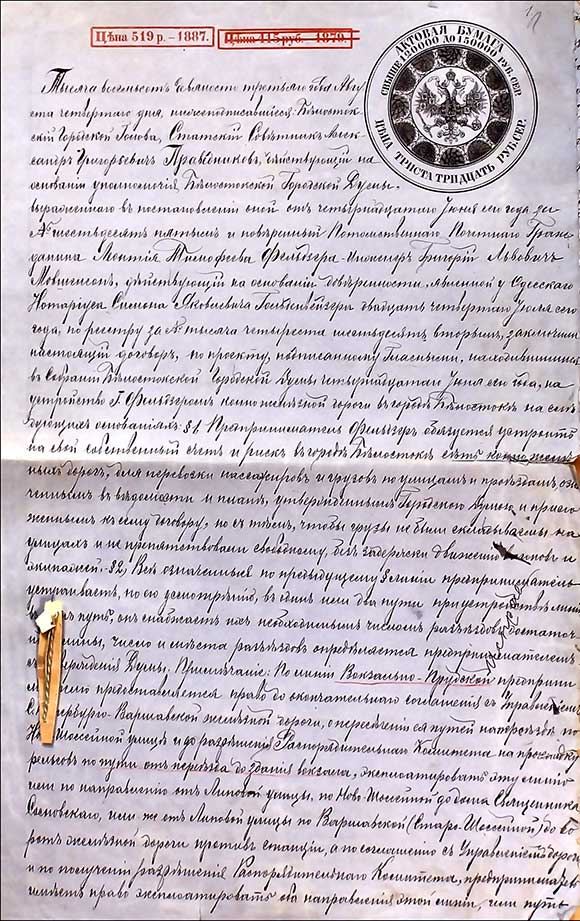 Цѣна 519 р. – 1887.
Цѣна 415 руб. – 1879.
АКТОВАЯ БУМАГА
СВЫШЕ 130000 ДО 150000 РУБ. СЕР.
ЦѢНА ТРИСТА ТРИДЦАТЬ РУБ. СЕР.
Тысяча восемьсотъ девяносто третьяго года Авгу-
ста четвертаго дня, нижеподписавшіеся Бѣлосток-
скій Городской Голова, Статскій Совѣтникъ Алек-
сандръ Григорьевичъ Праведниковъ, дѣйствующій на
основаніи уполномочія Бѣлостокской Городской Думы,
выраженнаго въ постановленіи оной отъ четырнадцатаго Іюня сего года за
№ шестьдесятъ пятымъ и повѣренный Потомственнаго Почетнаго Граж-
данина Монтія Тимофеева Фельдзера – Инженеръ Григорій Львовичъ
дѣйствующій на основаніи довѣренности, явленной у Одесскаго
Нотаріуса Симона Яковлевича двадцать четвертаго Іюля сего
года, по реестру за № тысяча четыреста шестьдесятъ вторымъ, заключили
настоящій договоръ, по проекту, подписанному Гласными, находившимися
въ Собраніи Бѣлостокской Городской Думы четырнадцатаго Іюня сего года, на
устройство Г. Фельдзеромъ конно-желѣзной дороги въ городѣ Бѣлостокѣ на слѣ-
дующихъ основаніяхъ: §1. Предприниматель Фельдзеръ обязуется устроить
на свой собственный счетъ и рискъ въ городѣ Бѣлостокѣ сѣть конно-желѣз-
ныхъ дорогъ, для перевозки пассажировъ и грузовъ по улицамъ и проѣздамъ, озна-
ченнымъ въ вѣдомости и планѣ, утвержденнымъ Городской Думою и прило-
женнымъ къ сему договору, но съ тѣмъ, чтобы грузы не были складываемы на
улицахъ и не препятствовали свободному, безъ задержки движенію и
экипажей. §2. Всѣ означенныя по предыдущему § линіи предприниматель
устраиваетъ, по его усмотрѣнію, въ одинъ или два пути при устройствѣ линіи
путь, онъ снабжаетъ ихъ необходимымъ числомъ разъѣздовъ достаточ-
длины, число и мѣста разъѣздовъ опредѣляется предпринимателемъ
Думы. Примѣчаніе: По линіи Вокзально-Прудской предприни-
предоставляется право до окончательнаго соглашенія съ Управленіемъ
Петербурго-Варшавской желѣзной дороги, о пересѣченіи ея путей на переѣздѣ по
Ново-Шоссейной улицѣ и до разрѣшенія Распорядительнаго Комитета на прокладку
рельсовъ по пути отъ переѣзда до зданія вокзала, эксплоатировать эту линію
или по направленію отъ Липовой улицы, по Ново-Шоссейной до дома Священника
Сосновскаго, или же отъ Липовой улицы по Варшавской (Старо-Шоссейной) до во-
ротъ желѣзной дороги противъ станціи, а по соглашенію съ Управленіемъ дороги
и по полученіи разрѣшенія Распорядительнаго Комитета, предприниматель
имѣетъ право эксплоатировать оба направленія этой линіи, или путь